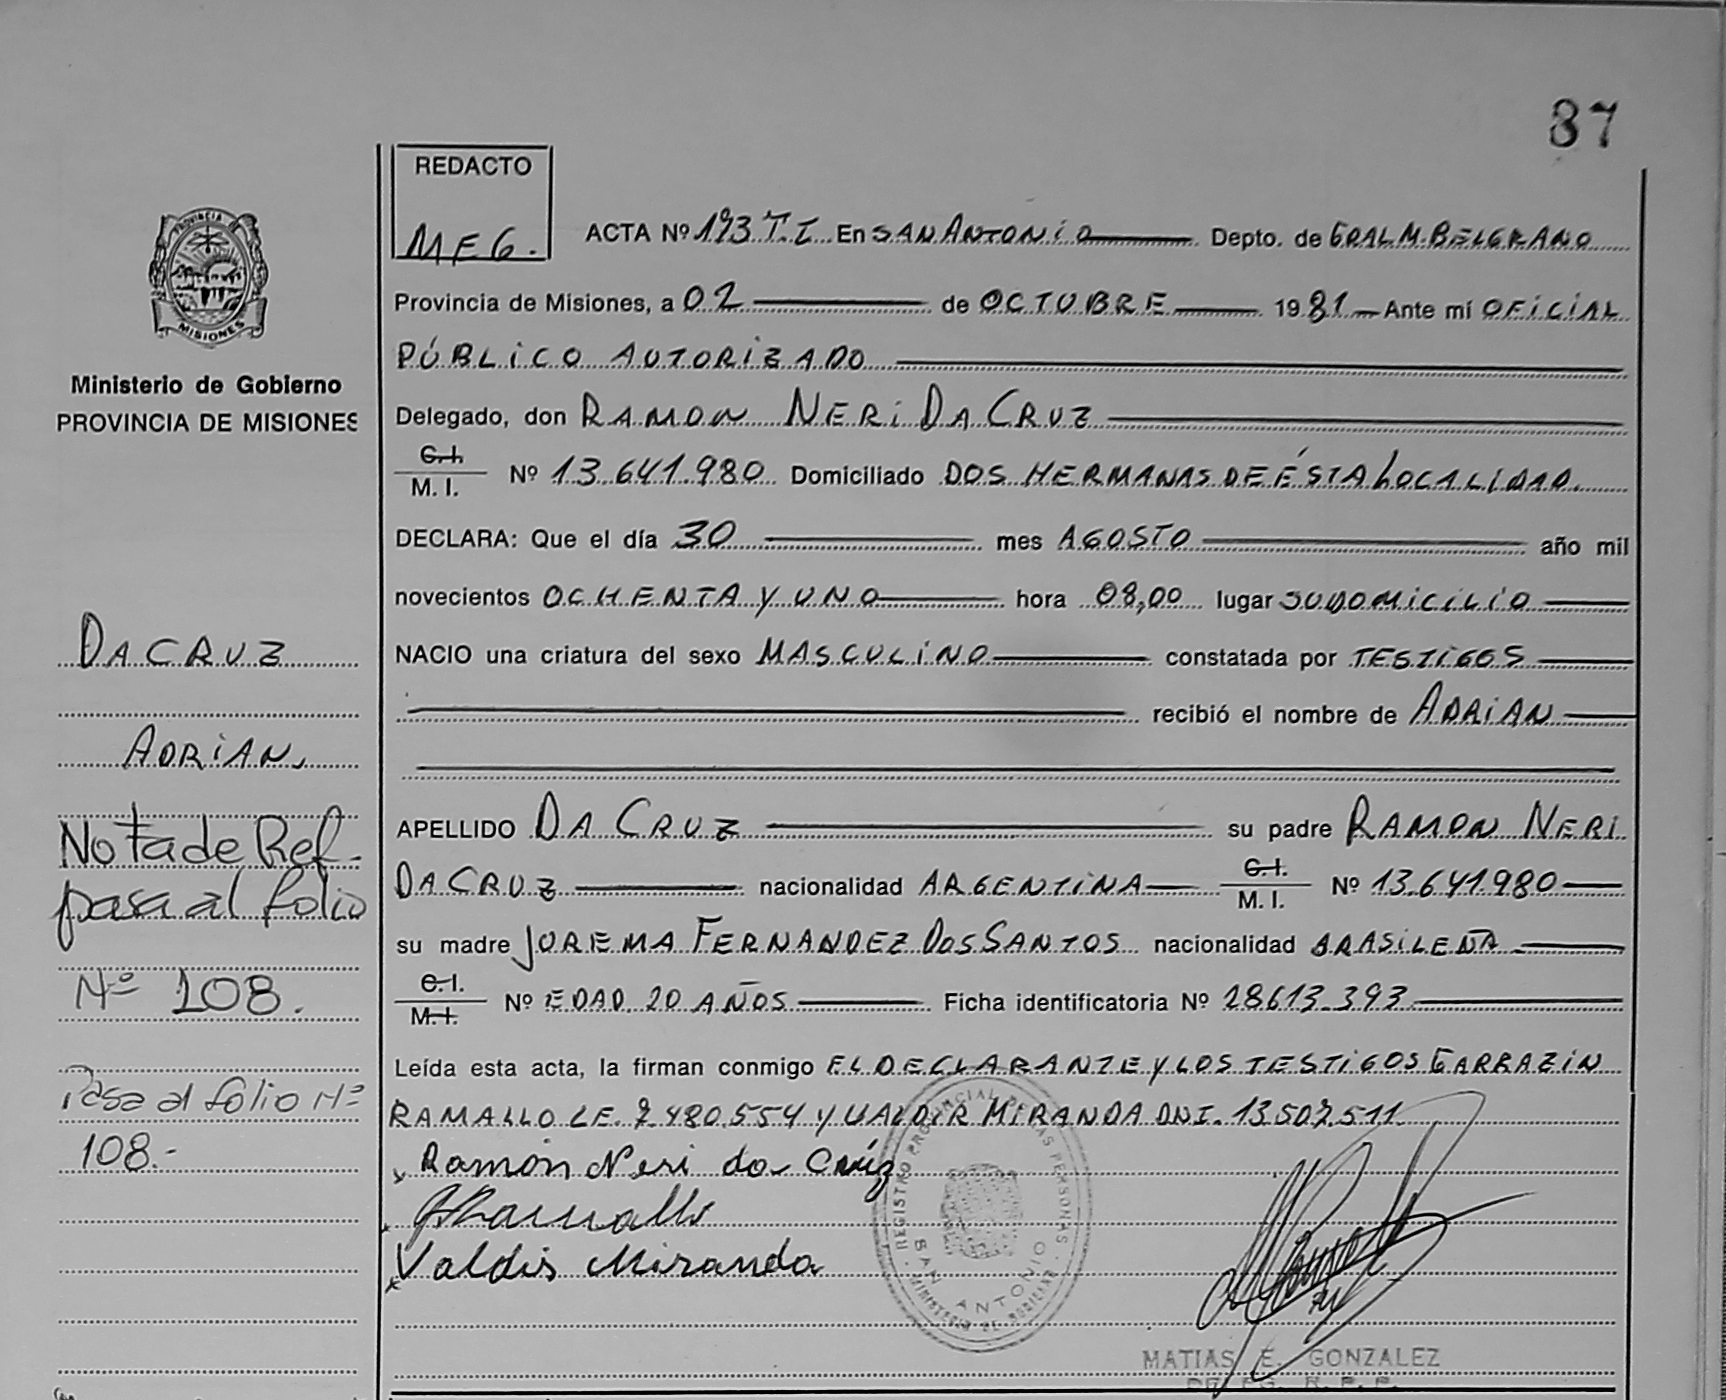 87
REDACTO
MEG.
ACTA Nº 193 T.I. En SAN ANTONIO Depto. de GRAL M. BELGRANO
Provincia de Misiones, a 02 de OCTUBRE 1981 Ante mí OFICIAL
PÚBLICO AUTORIZADO
Delegado, don RAMON NERI DA CRUZ
C.I.
M. I. Nº 13.641.980 Domiciliado DOS HERMANAS DE ÉSTA LOCALIDAD.
DECLARA: Que el día 30 mes AGOSTO año mil
novecientos OCHENTA Y UNO hora 08,00 lugar SU DOMICILIO
NACIO una criatura del sexo MASCULINO constatada por TESTIGOS
recibió el nombre de ADRIAN
APELLIDO DA CRUZ su padre RAMON NERI
DA CRUZ nacionalidad ARGENTINA C.I. M. I. Nº 13.641.980
su madre JUREMA FERNANDEZ DOS SANTOS nacionalidad BRASILEÑA
C.I.
M.I. Nº EDAD 20 AÑOS Ficha identificatoria Nº 28613.393
Leída esta acta, la firman conmigo EL DECLARANTE Y LOS TESTIGOS GARRAZIN
RAMALLO LE. 7.480.554 Y VALDIR MIRANDA DNI. 13.507.511
Ramón Neri da Crúz
Ramallo
Valdir Miranda
REGISTRO PROVINCIAL DE LAS PERSONAS
SAN ANTONIO
MINISTERIO DE GOBIERNO
MATIAS E. GONZALEZ
PROVINCIA
MISIONES
Ministerio de Gobierno
PROVINCIA DE MISIONES
DA CRUZ
ADRIAN.
Nota de Ref.
pasa al folio
Nº 108.
Pasa al folio Nº
108.-